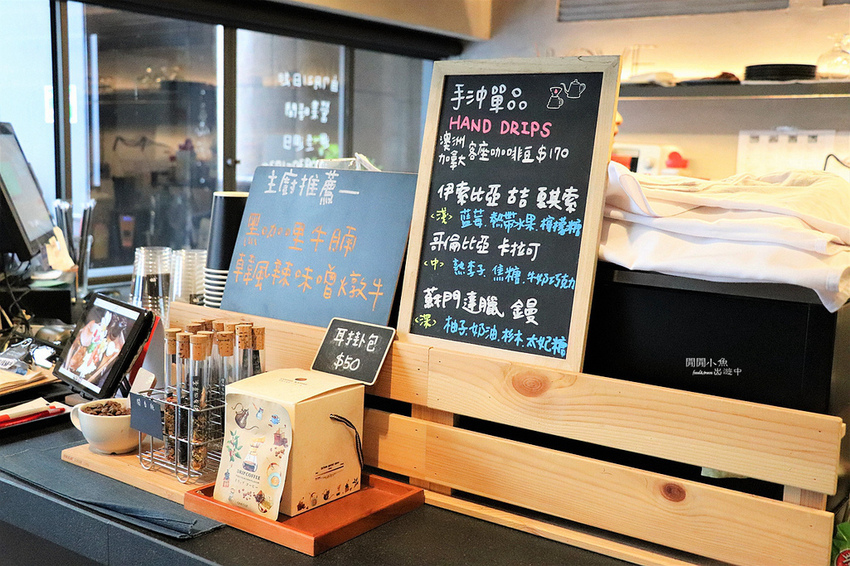 手沖單品
HAND DRIPS
澳洲
加掌大 客座咖啡豆$170
伊索比亞 古吉 夏其索
<淺> 藍莓.熱帶水果.檸檬糖
哥倫比亞 卡拉可
<中> 熟李子.焦糖.牛奶巧克力
蘇門達臘 鐘
<深> 柚子.奶油.杉木.太妃糖
主廚推薦
黑咖哩牛腩
韓風辣味噌燉牛
耳掛包
$50
DRIP COFFEE
開開小魚
出遊中